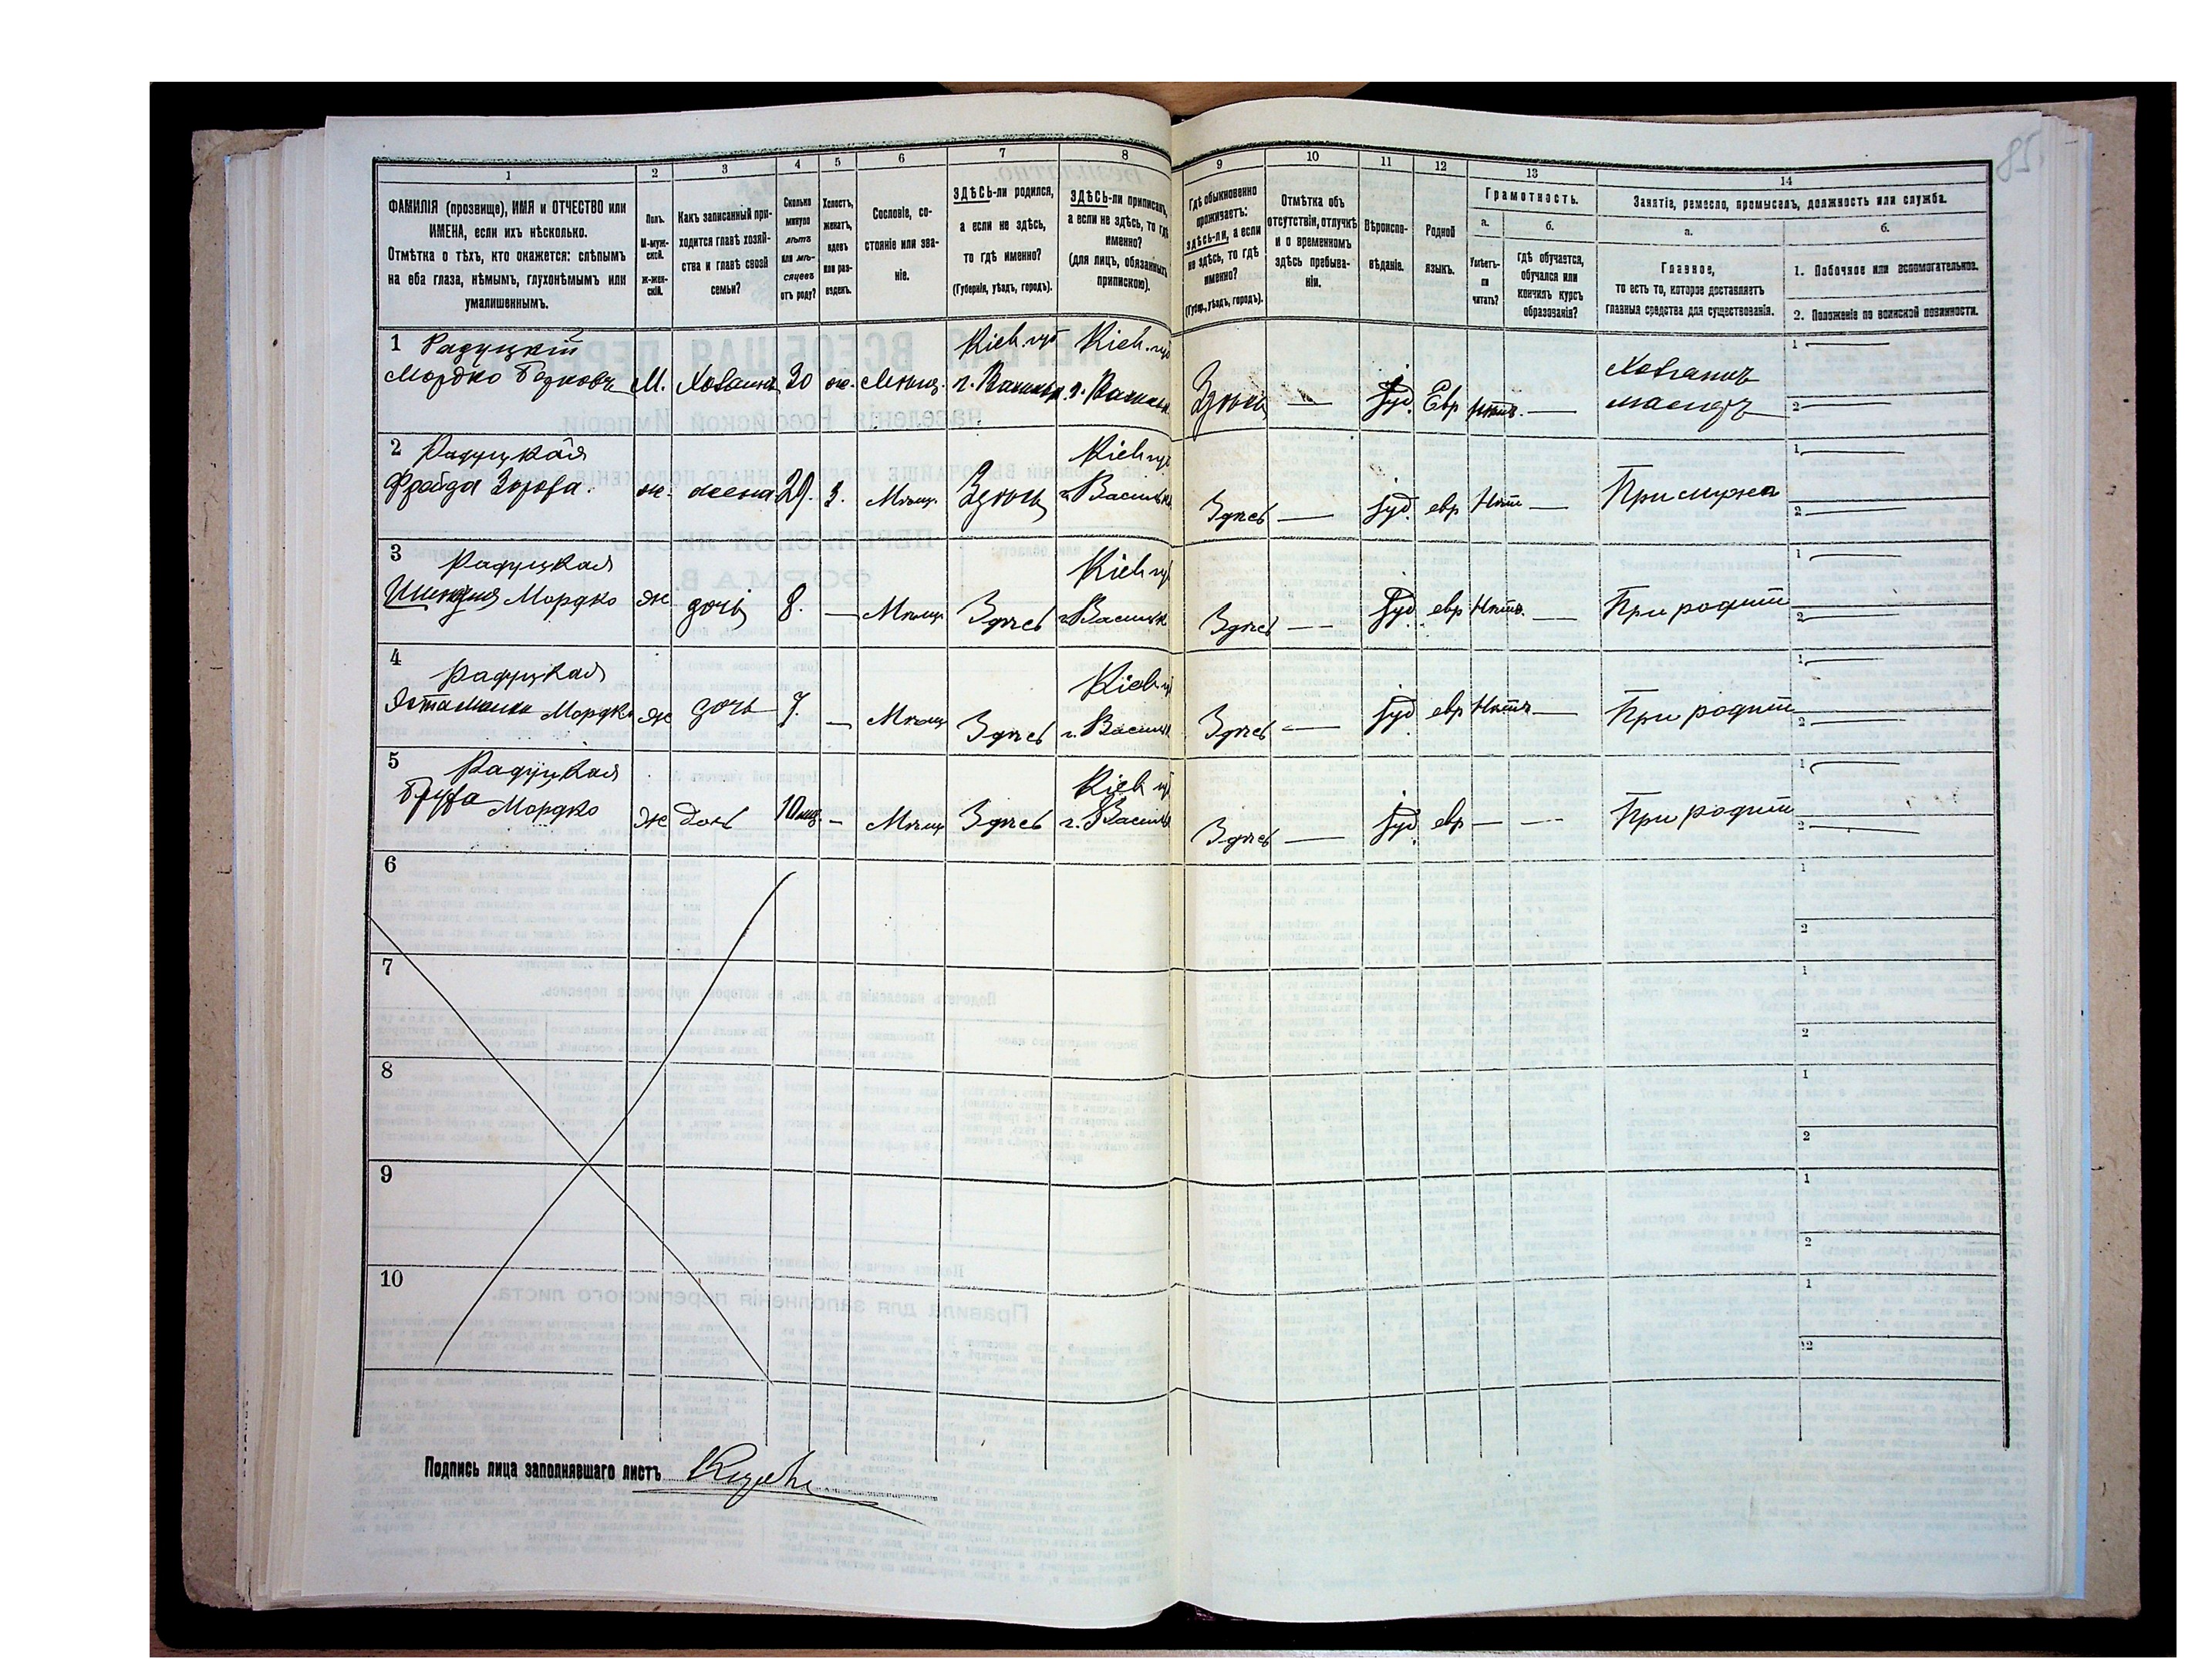 85
1 2 3 4 5 6 7 8 9 10 11 12 13 14
ФАМИЛІЯ (прозвище), ИМЯ и ОТЧЕСТВО или
ИМЕНА, если ихъ нѣсколько.
Отмѣтка о тѣхъ, кто окажется: слѣпымъ
на оба глаза, нѣмымъ, глухонѣмымъ или
умалишеннымъ.
Полъ.
М-муж-
ской.
ж-жен-
скій.
Какъ записанный при-
ходится главѣ хозяй-
ства и главѣ своей
семьи?
Сколько
минуло
лѣтъ
или мѣ-
сяцевъ
отъ роду?
Холостъ,
женатъ,
вдовъ
или раз-
веденъ.
Сословіе, со-
стояніе или зва-
ніе.
ЗДѢСЬ-ли родился,
а если не здѣсь,
то гдѣ именно?
(Губернія, уѣздъ, городъ).
ЗДѢСЬ-ли приписанъ,
а если не здѣсь, то гдѣ
именно?
(для лицъ, обязанныхъ
припискою).
Гдѣ обыкновенно
проживаетъ:
здѣсь-ли, а если
не здѣсь, то гдѣ
именно?
(Губер., уѣздъ, городъ).
Отмѣтка объ
отсутствіи, отлучкѣ
и о временномъ
здѣсь пребыва-
ніи.
Вѣроиспо-
вѣданіе.
Родной
языкъ.
Грамотность.
а.
Умѣетъ-
ли
читать?
б.
гдѣ обучается,
обучался или
кончилъ курсъ
образованія?
Занятіе, ремесло, промыселъ, должность или служба.
а.
Главное,
то есть то, которое доставляетъ
главныя средства для существованія.
б.
1. Побочное или вспомогательное.
2. Положеніе по воинской повинности.
1 Радуцкій Кіев. губ Кіев. губ
Мордко М. Хозяинъ 30 ж. Мѣщ. г. Васильк г. Васильк Здѣсь — Іуд. Евр Нѣтъ. —
1
2
2 Радуцкая Кіев губ
Фрейда ж. жена 29. з. Мѣщ. Здѣсь г. Васильк Здѣсь — Іуд. евр Нѣт — При мужѣ
1
2
3 Радуцкая Кіев губ
Мордко ж дочь 8. — Мѣщ Здѣсь г. Васильк Здѣсь — Іуд. евр Нѣтъ. — При родит
1
2
4 Радуцкая Кіев г
Мордко ж дочь 7. — Мѣщ Здѣсь г. Васильк Здѣсь — Іуд евр Нѣтъ — При родит
1
2
5 Радуцкая Кіев губ
Мордко ж дочь 10 мѣс. — Мѣщ Здѣсь г. Васильк Здѣсь — Іуд. евр — — При родит
1
2
6
1
2
7
1
2
8
1
2
9
1
2
10
1
2
Подпись лица заполнявшаго листъ